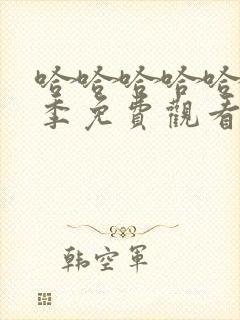 哈哈哈哈哈
季免費觀看
韩空軍